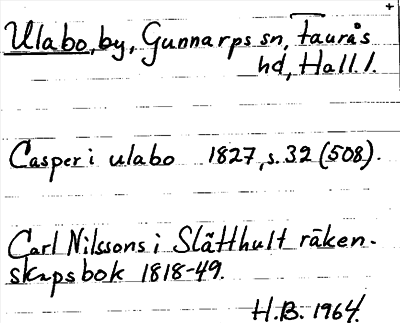 Ulabo, by, Gunnarps sn, Faurås
hd, Hall. l.
Casper i ulabo 1827, s. 32 (508).
Carl Nilssons i Slätthult räken-
skapsbok 1818-49.
H.B. 1964.